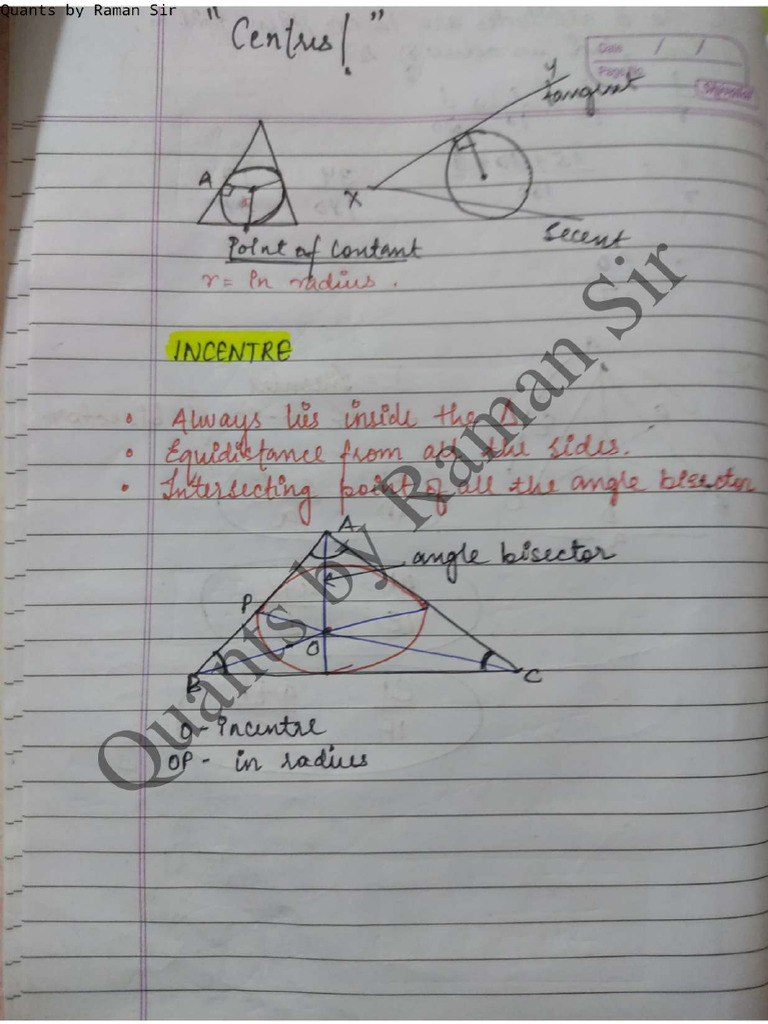 Quants by Raman Sir
"Centres!"
Date / /
Page No
y
tangent
A
r
X
Secent
Point of Contant
r = In radius.
INCENTRE
• Always lies inside the Δ
• Equidistance from all the sides.
• Intersecting point of all the angle bisector
A
angle bisector
P
O
B
C
O - incentre
OP - in radius
Quants by Raman Sir